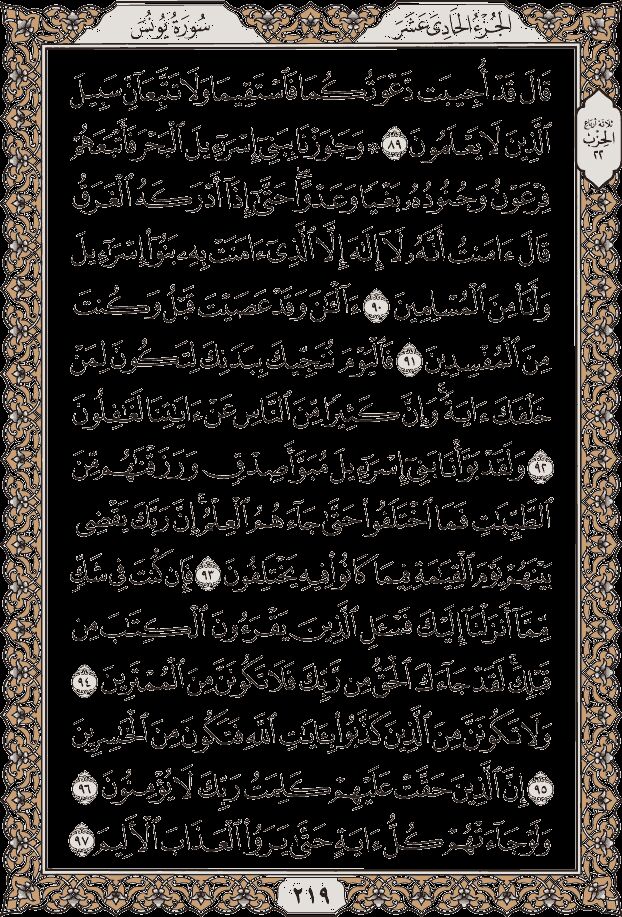 الجزء الحادي عشر
سورة يونس
ثلاثة أرباع
الحزب
٢٢
قَالَ قَدْ أُجِيبَت دَّعْوَتُكُمَا فَٱسْتَقِيمَا وَلَا تَتَّبِعَآنِّ سَبِيلَ
ٱلَّذِينَ لَا يَعْلَمُونَ ٨٩ ۞ وَجَٰوَزْنَا بِبَنِىٓ إِسْرَٰٓءِيلَ ٱلْبَحْرَ فَأَتْبَعَهُمْ
فِرْعَوْنُ وَجُنُودُهُۥ بَغْيًا وَعَدْوًا ۖ حَتَّىٰٓ إِذَآ أَدْرَكَهُ ٱلْغَرَقُ
قَالَ ءَامَنتُ أَنَّهُۥ لَآ إِلَٰهَ إِلَّا ٱلَّذِىٓ ءَامَنَتْ بِهِۦ بَنُوٓا۟ إِسْرَٰٓءِيلَ
وَأَنَا۠ مِنَ ٱلْمُسْلِمِينَ ٩٠ ءَآلْـَٰٔنَ وَقَدْ عَصَيْتَ قَبْلُ وَكُنتَ
مِنَ ٱلْمُفْسِدِينَ ٩١ فَٱلْيَوْمَ نُنَجِّيكَ بِبَدَنِكَ لِتَكُونَ لِمَنْ
خَلْفَكَ ءَايَةً ۚ وَإِنَّ كَثِيرًا مِّنَ ٱلنَّاسِ عَنْ ءَايَٰتِنَا لَغَٰفِلُونَ
٩٢ وَلَقَدْ بَوَّأْنَا بَنِىٓ إِسْرَٰٓءِيلَ مُبَوَّأَ صِدْقٍ وَرَزَقْنَٰهُم مِّنَ
ٱلطَّيِّبَٰتِ فَمَا ٱخْتَلَفُوا۟ حَتَّىٰ جَآءَهُمُ ٱلْعِلْمُ ۚ إِنَّ رَبَّكَ يَقْضِى
بَيْنَهُمْ يَوْمَ ٱلْقِيَٰمَةِ فِيمَا كَانُوا۟ فِيهِ يَخْتَلِفُونَ ٩٣ فَإِن كُنتَ فِى شَكٍّ
مِّمَّآ أَنزَلْنَآ إِلَيْكَ فَسْـَٔلِ ٱلَّذِينَ يَقْرَءُونَ ٱلْكِتَٰبَ مِن
قَبْلِكَ ۚ لَقَدْ جَآءَكَ ٱلْحَقُّ مِن رَّبِّكَ فَلَا تَكُونَنَّ مِنَ ٱلْمُمْتَرِينَ ٩٤
وَلَا تَكُونَنَّ مِنَ ٱلَّذِينَ كَذَّبُوا۟ بِـَٔايَٰتِ ٱللَّهِ فَتَكُونَ مِنَ ٱلْخَٰسِرِينَ
٩٥ إِنَّ ٱلَّذِينَ حَقَّتْ عَلَيْهِمْ كَلِمَتُ رَبِّكَ لَا يُؤْمِنُونَ ٩٦
وَلَوْ جَآءَتْهُمْ كُلُّ ءَايَةٍ حَتَّىٰ يَرَوُا۟ ٱلْعَذَابَ ٱلْأَلِيمَ ٩٧
٢١٩